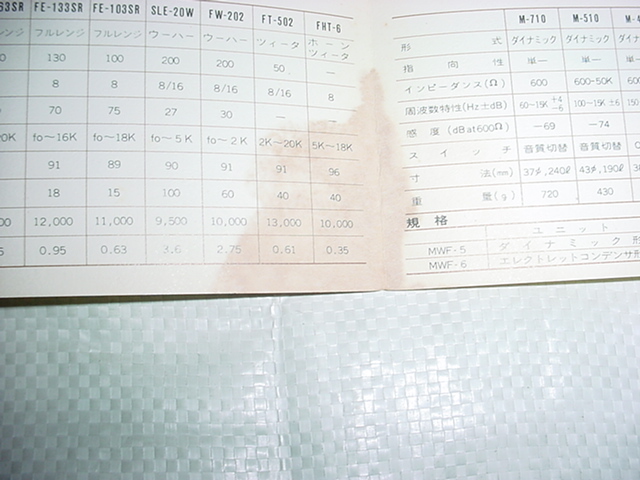 63SR FE-133SR FE-103SR SLE-20W FW-202 FT-502 FHT-6
レンジ フルレンジ フルレンジ ウーハー ウーハー ツィータ ホーン
ツィータ
130 100 200 200 50 —
8 8 8/16 8/16 8/16 8
70 75 27 30 — —
20K fo〜16K fo〜18K fo〜5K fo〜2K 2K〜20K 5K〜18K
91 89 90 91 91 96
18 15 100 60 40 40
00 12,000 11,000 9,500 10,000 13,000 10,000
5 0.95 0.63 3.6 2.75 0.61 0.35
M-710 M-510 M-4
形式 ダイナミック ダイナミック ダイナ
指向性 単一 単一 単
インピーダンス(Ω) 600 600-50K 600
周波数特性(Hz±dB) 60〜15K +4 -6 100〜15K ±6
感度(dBat600Ω) −69 −74
スイッチ 音質切替 音質切替
寸法(mm) 37φ,240ℓ 43φ,190ℓ
重量(g) 720 430
規格
ユニット
MWF-5 ダイナミック形
MWF-6 エレクトレットコンデンサ形